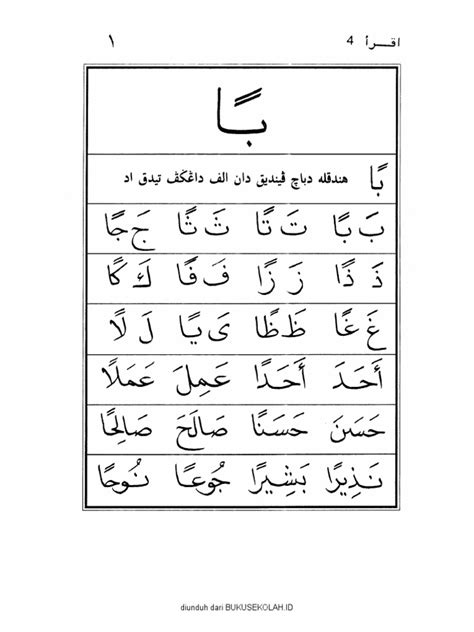 اقرأ 4 ١
بًا
بًا هندقله دباچ ڤينديق دان الف داڠݢڤ تيدق اد
بَ بًا تَ تًا ثَ ثًا جَ جًا
ذَ ذًا زَ زًا فَ فًا كَ كًا
غَ غًا ظَ ظًا یَ يًا لَ لًا
أَحَدَ أَحَدًا عَمِلَ عَمَلًا
حَسَنَ حَسَنًا صَالَحَ صَالِحًا
نَذِيرًا بَشِيرًا جُوعًا نُوحًا
diunduh dari BUKUSEKOLAH.ID